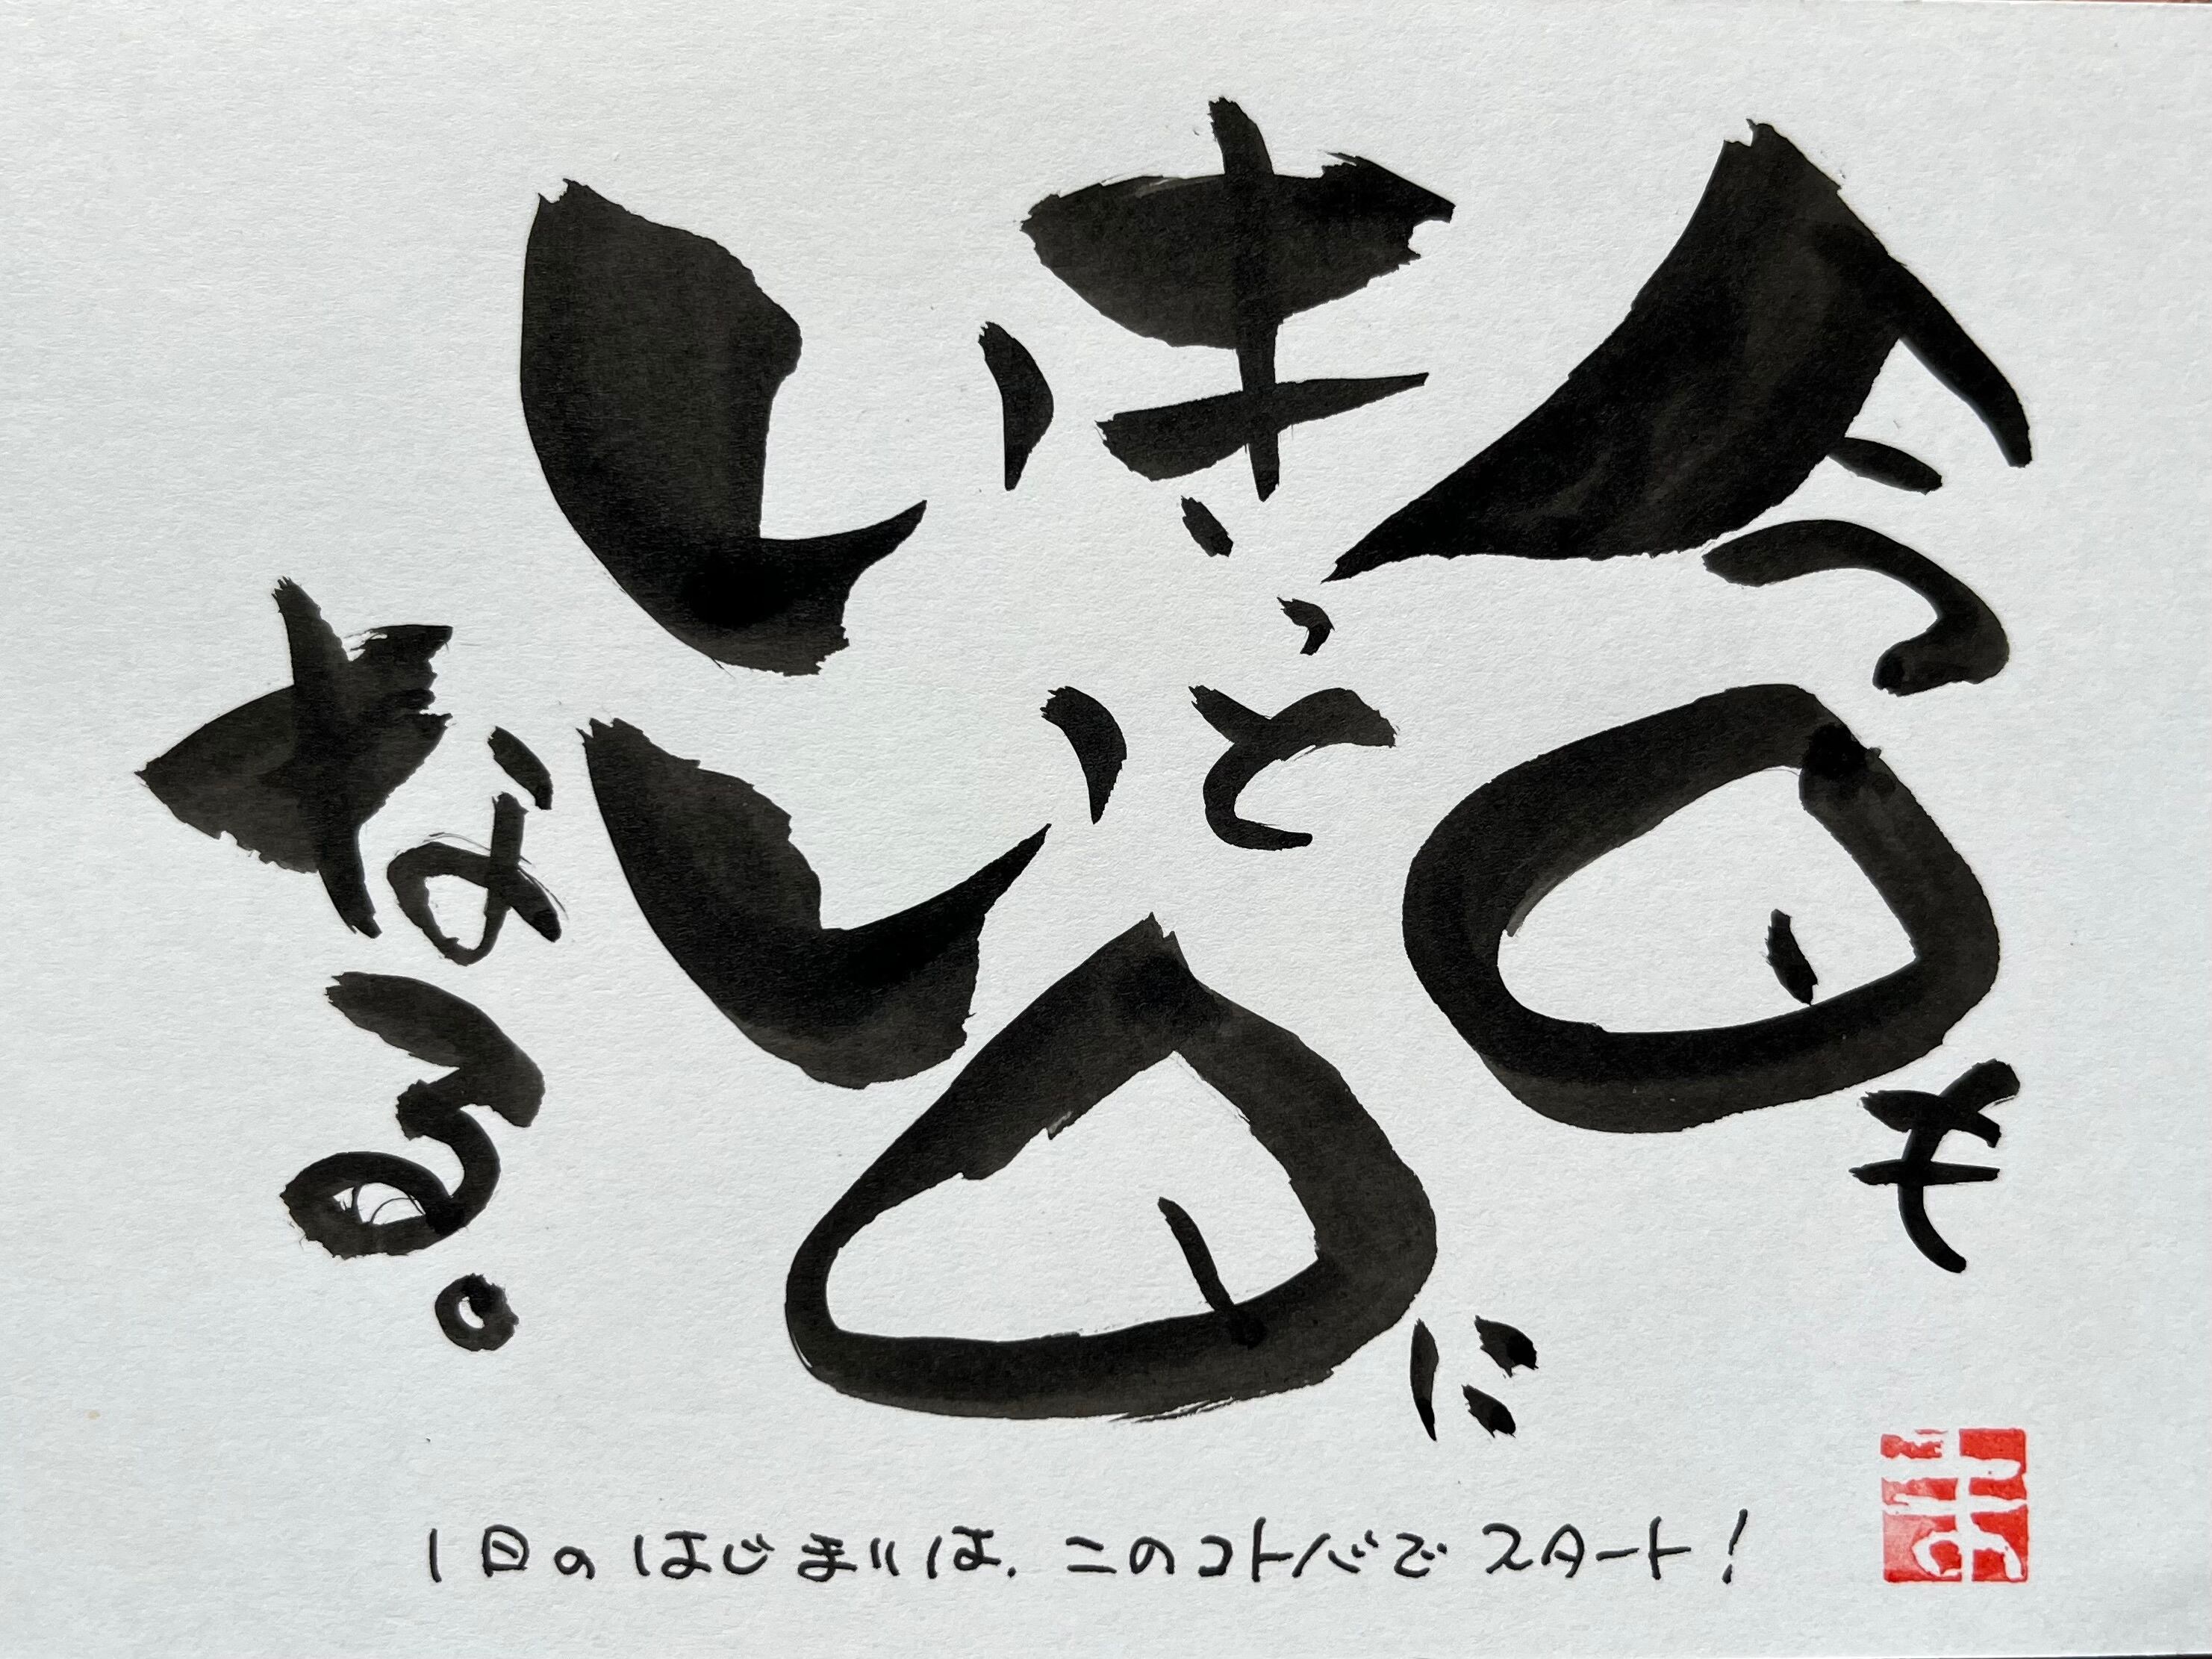 今日も
きっと
いい日に
なる。
1日のはじまりは、このコトバでスタート！